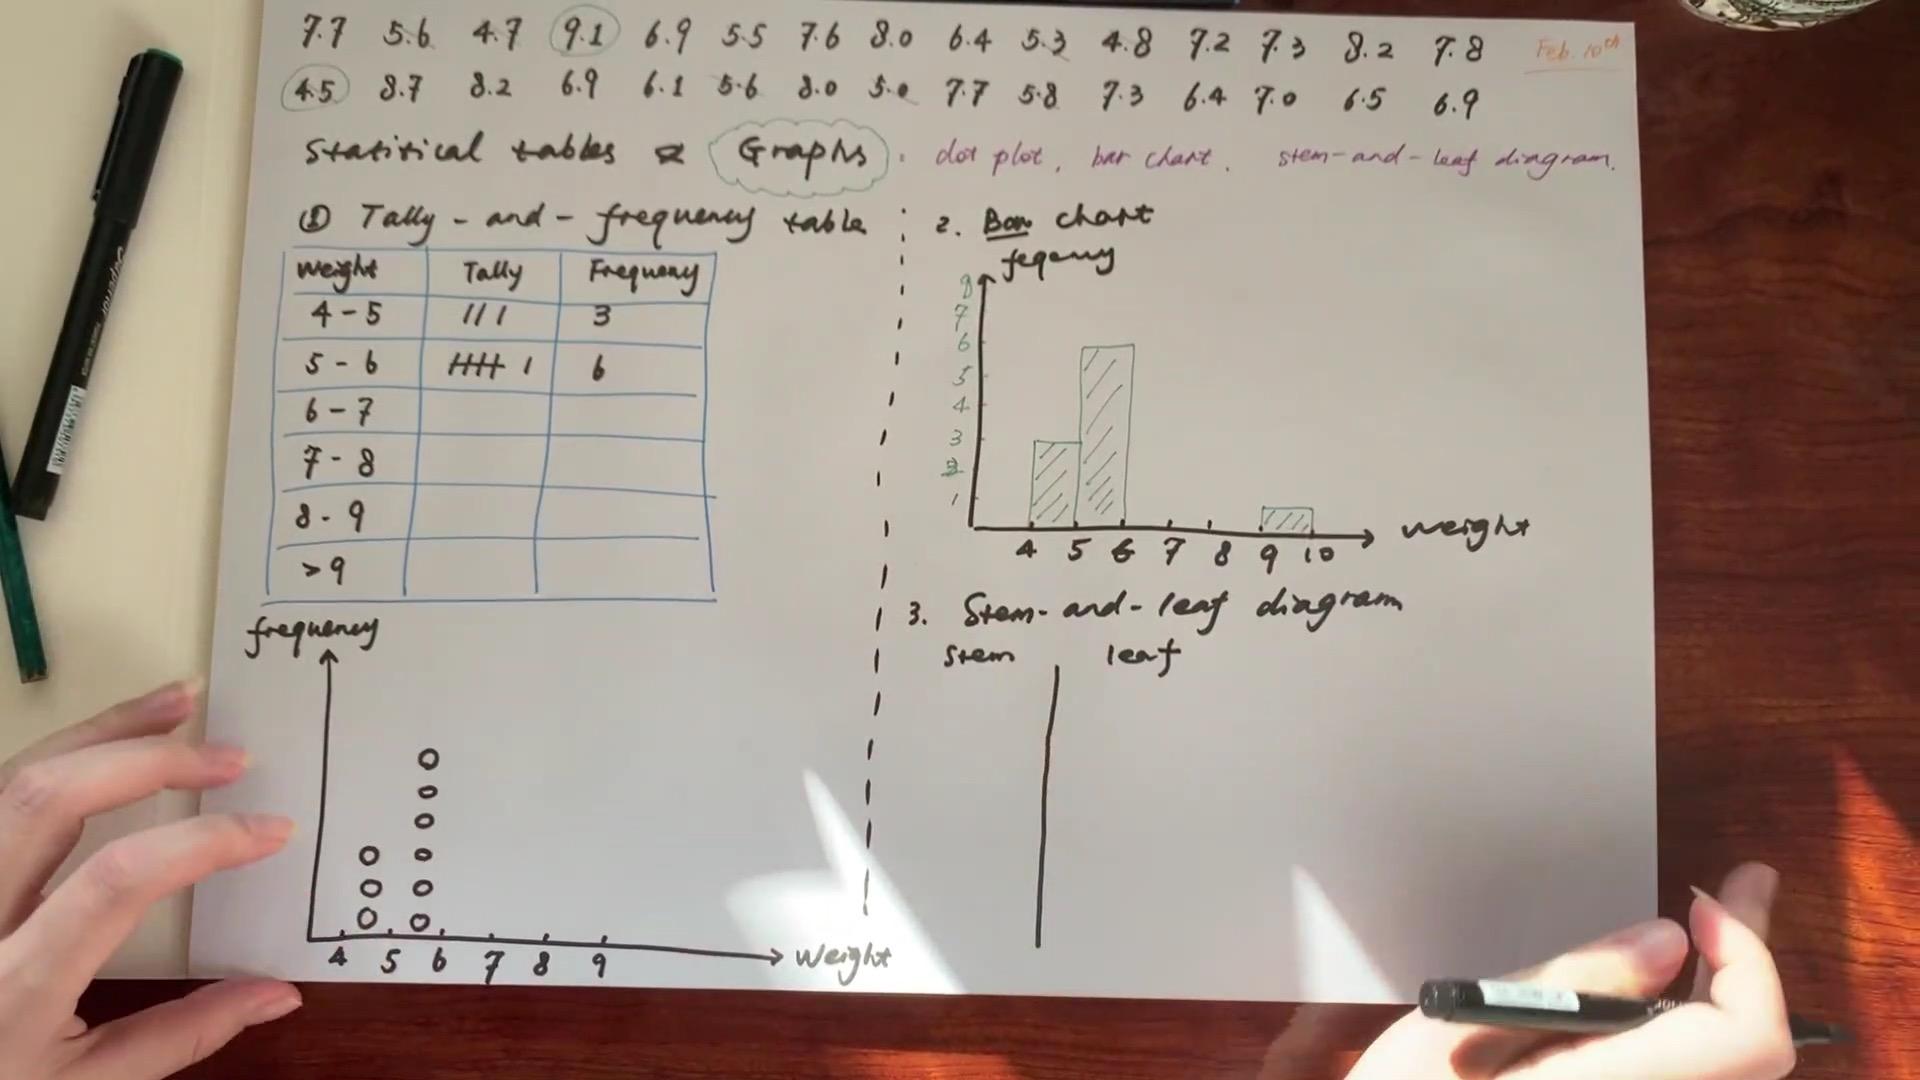 7.7 5.6 4.7 9.1 6.9 5.5 7.6 8.0 6.4 5.3 4.8 7.2 7.3 8.2 7.8
Feb. 10th
4.5 8.7 8.2 6.9 6.1 5.6 8.0 5.0 7.7 5.8 7.3 6.4 7.0 6.5 6.9
Statistical tables & Graphs: dot plot, bar chart. stem-and-leaf diagram.
① Tally-and-frequency table
Weight Tally Frequency
4-5 /// 3
5-6 6
6-7
7-8
8-9
>9
frequency
4 5 6 7 8 9
Weight
2. Bar chart
feqency
8
7
6
5
4
3
1
4 5 6 7 8 9 10
weight
3. Stem-and-leaf diagram
stem leaf